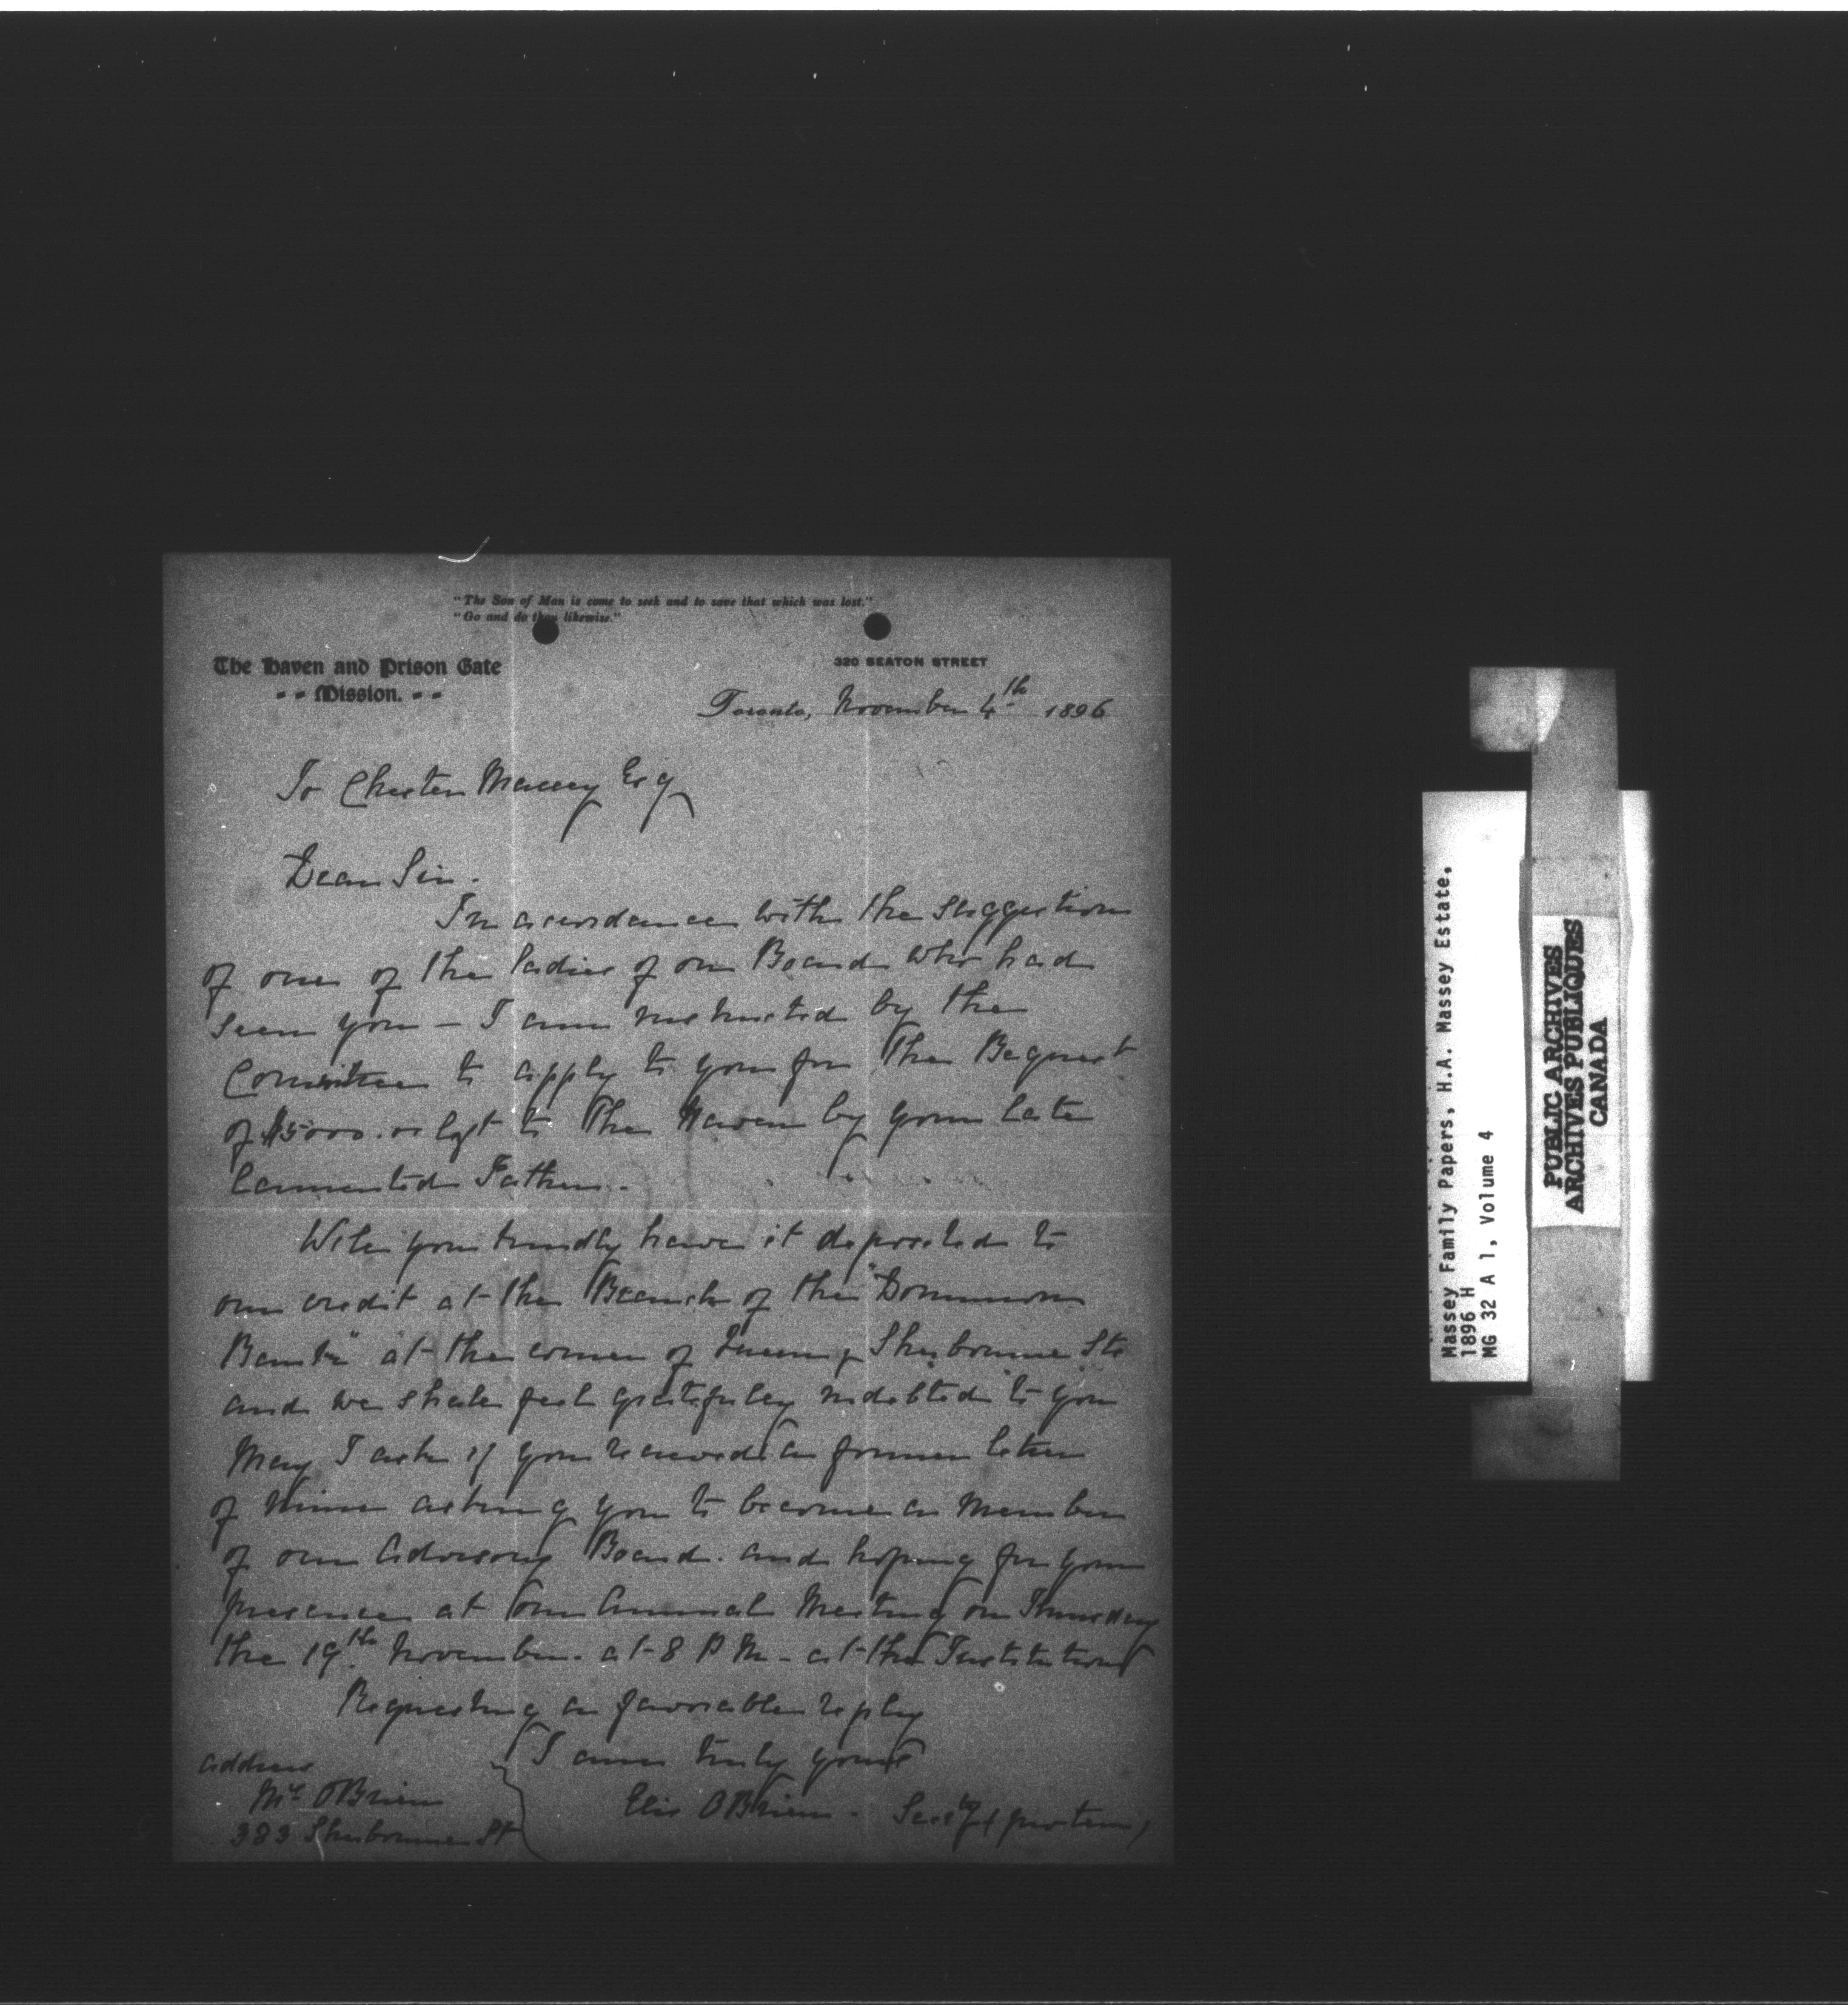 "The Son of Man is come to seek and to save that which was lost."
"Go and do thou likewise."
The Haven and Prison Gate
Mission.
320 SEATON STREET
Toronto, November 4th 1896
To Chester Massey Esq
Dear Sir.
In accordance with the suggestion
of one of the ladies of our Board who had
seen you — I am instructed by the
Committee to apply to you for the Bequest
of $5000. left to The Haven by your late
lamented Father.
Will you kindly have it deposited to
our credit at the Branch of the "Dominion
Bank" at the corner of Queen & Sherbourne Sts
and we shall feel gratefully indebted to you
May I ask if you received a former letter
of mine asking you to become a member
of our Advisory Board. and hoping for your
presence at our Annual Meeting on Thursday
the 19th November. at 8 P M - at the Institution
Requesting a favorable reply
I am truly yours
Eliz OBrien. Secty (pro tem)
address
Mrs OBrien
383 Sherbourne St
Massey Family Papers, H.A. Massey Estate.
1896 H
MG 32 A 1, Volume 4
PUBLIC ARCHIVES
ARCHIVES PUBLIQUES
CANADA